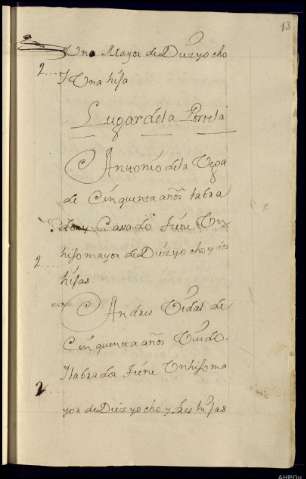 13
Uno Mayor de Diezyocho
2 Y Una hija
Lugar de la Perrela
Antonio de la Vega
de Cinquenta años labra
dor Casado tiene Un
hijo mayor de Diezyocho y
2
hijas
Andres Vidal de
Cinquenta años Viudo
Y labrador tiene Unhijoma
2
yor de Diezyocho y tres hijas
AHPOU